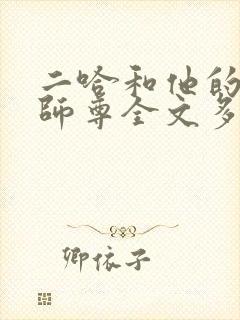 二哈和他的
師尊全文多
卿依子